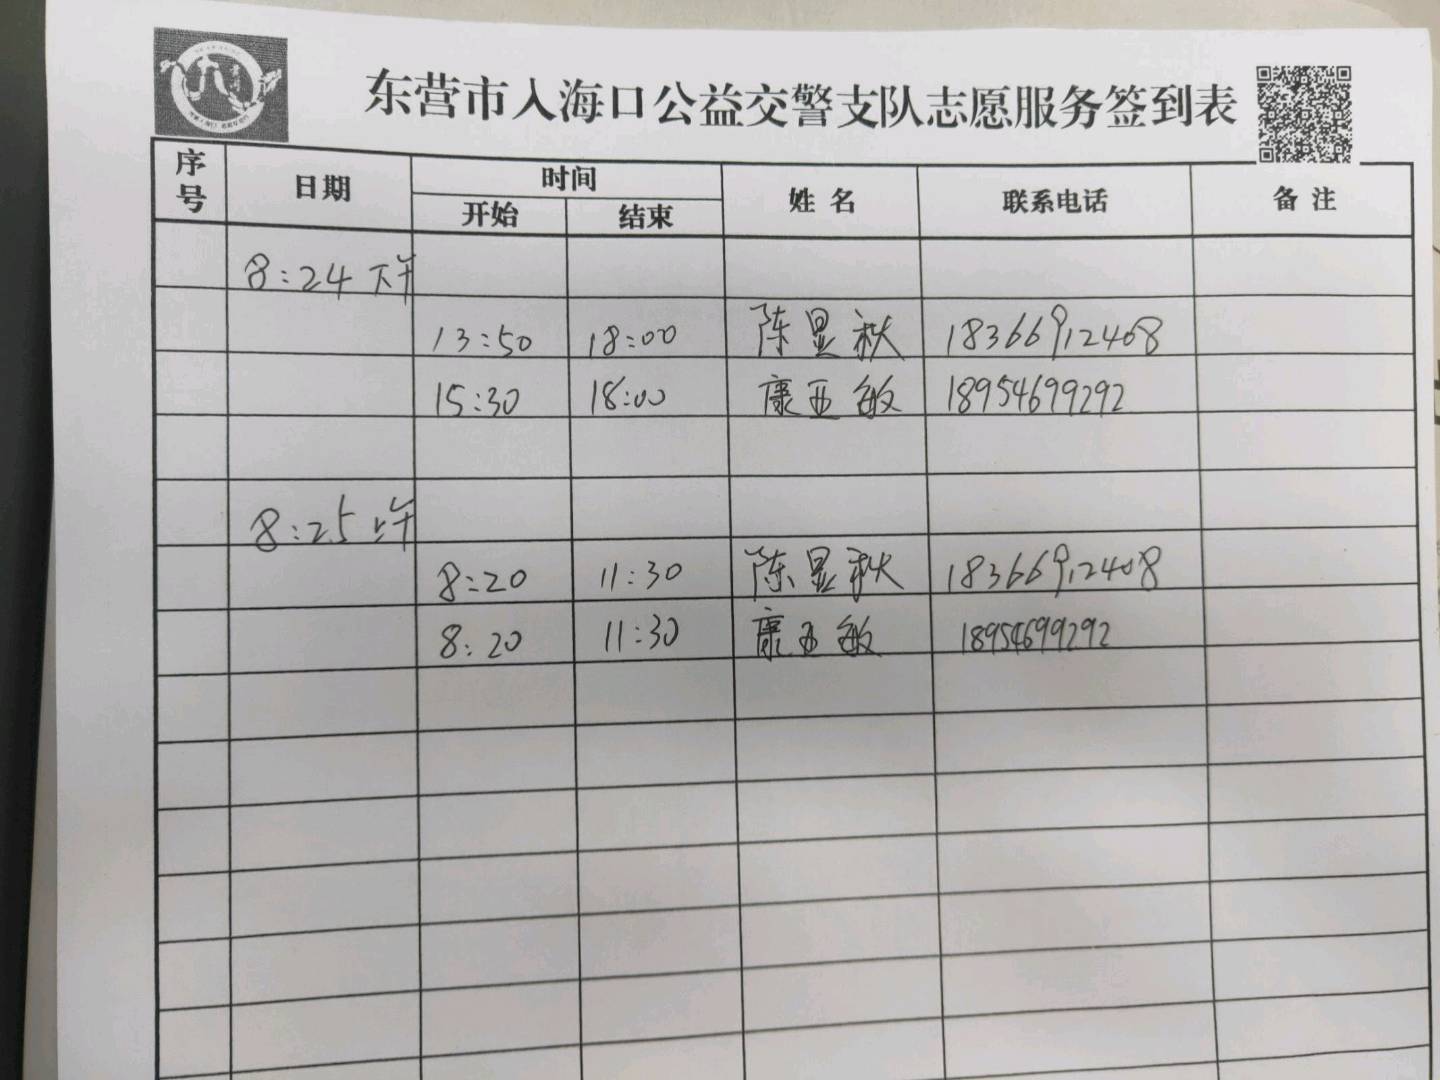 东营市入海口公益交警支队志愿服务签到表
序号 日期 时间 姓名 联系电话 备注
开始 结束
8:24 下午
13:50 18:00 陈显秋 18366912408
15:30 18:00 康亚敏 18954699292
8:25 上午
8:20 11:30 陈显秋 18366912408
8:20 11:30 康亚敏 18954699292